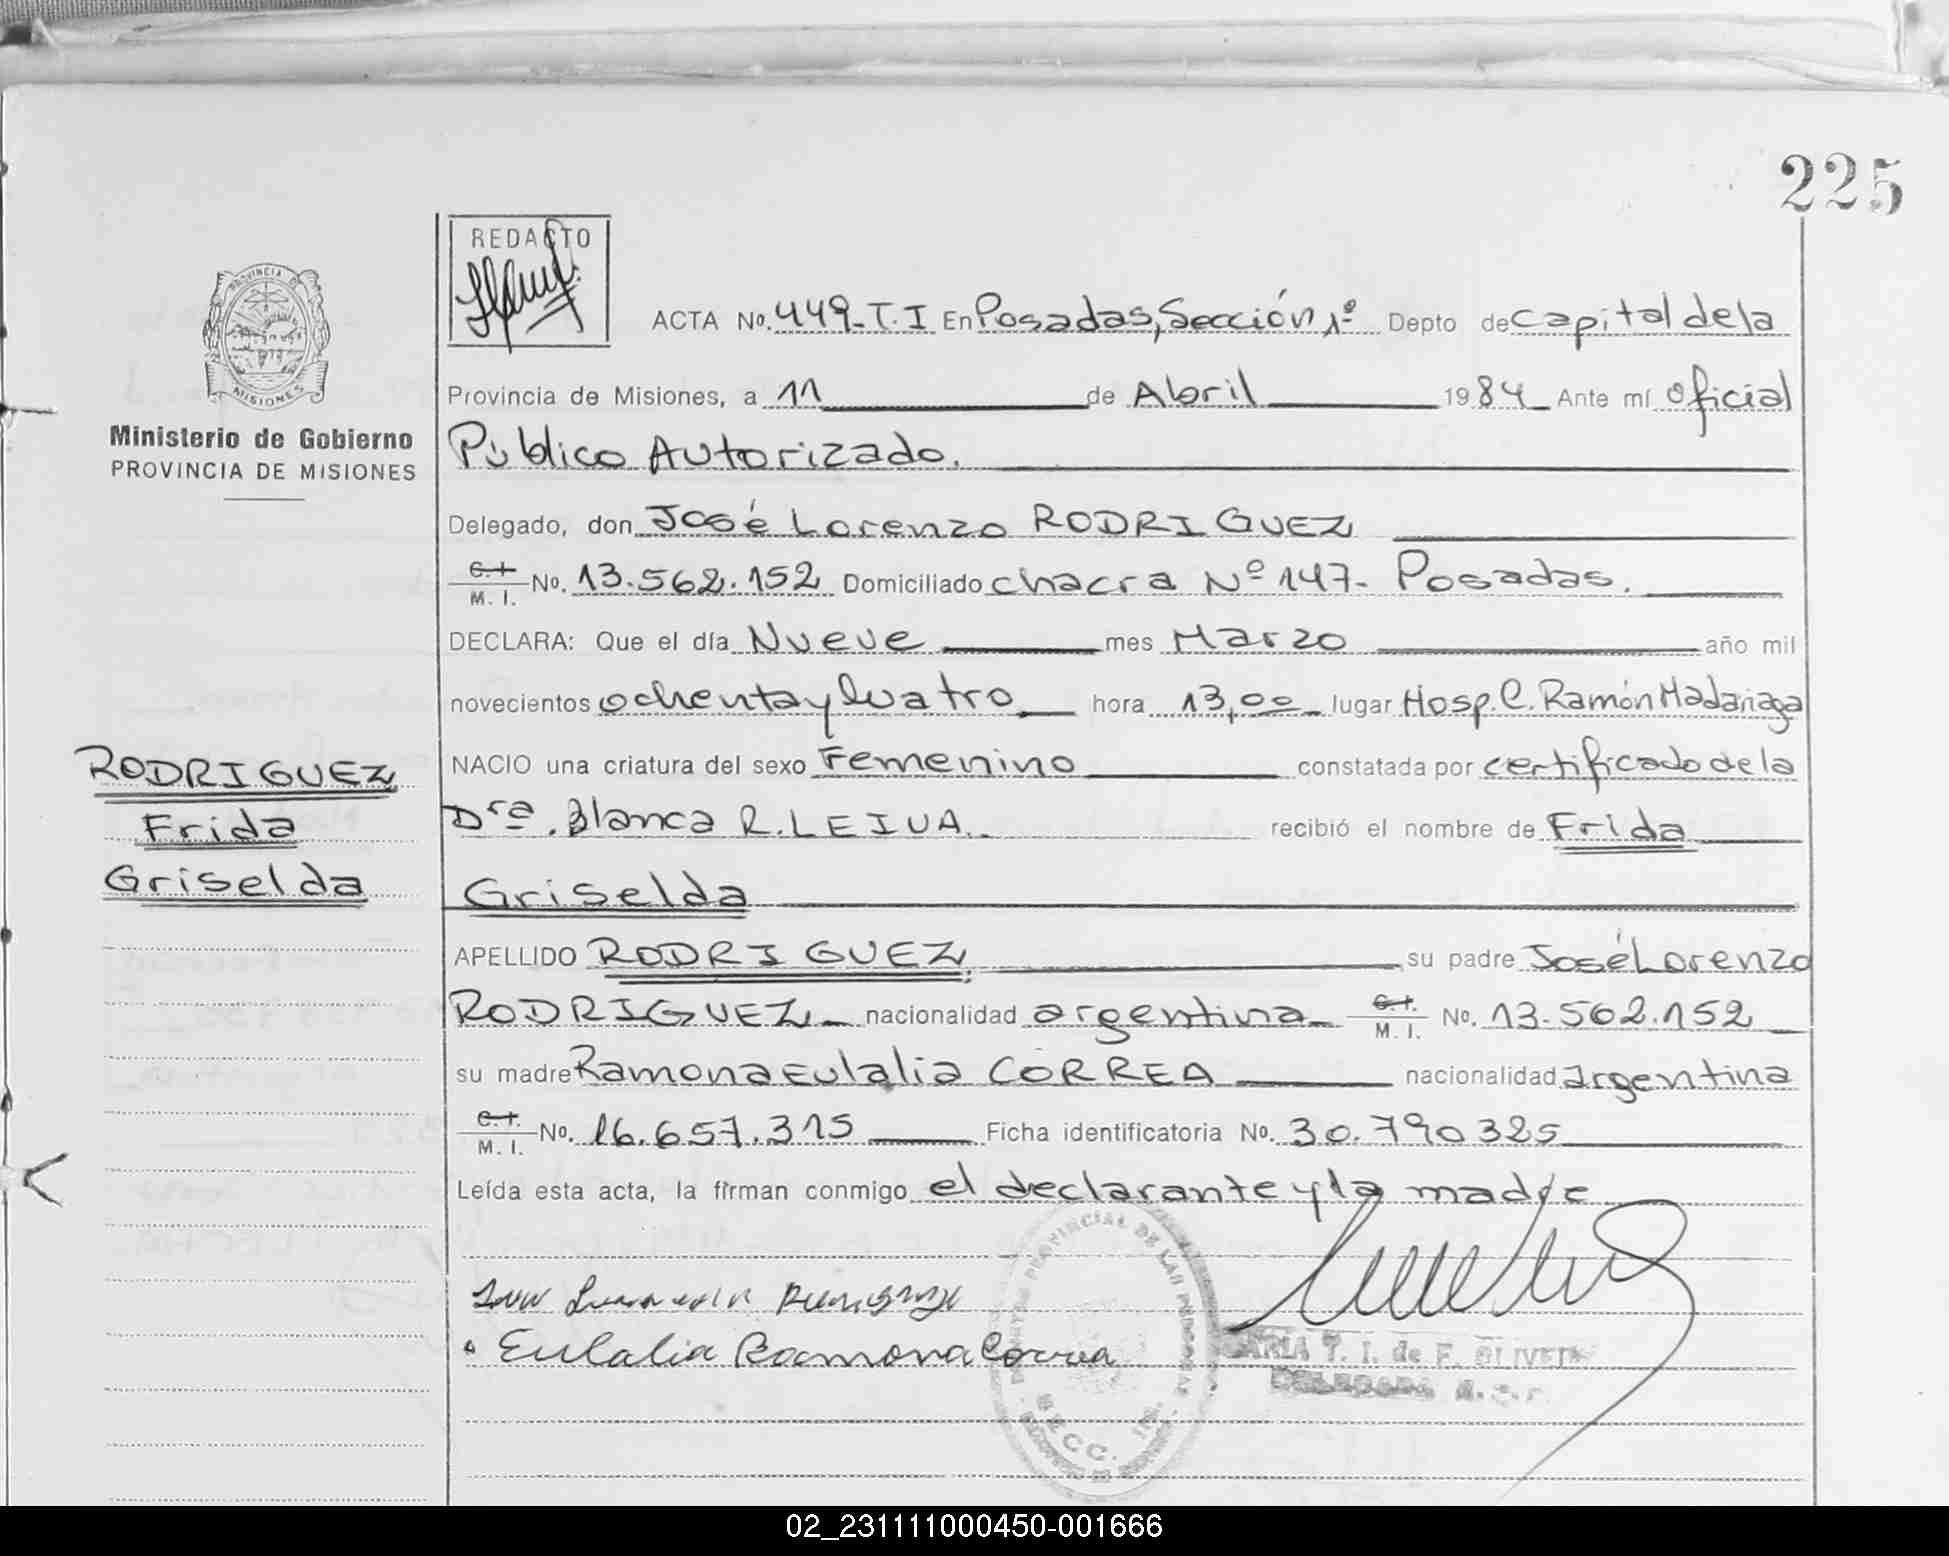 225
REDACTO
PROVINCIA DE
MISIONES
Ministerio de Gobierno
PROVINCIA DE MISIONES
ACTA No. 449-T.I En Posadas, Sección 1ª Depto de Capital de la
Provincia de Misiones, a 11 de Abril 1984 Ante mí Oficial
Público Autorizado.
Delegado, don José Lorenzo RODRIGUEZ
C.I. M.I. No. 13.562.152 Domiciliado chacra Nº 147- Posadas.
DECLARA: Que el día Nueve mes Marzo año mil
novecientos ochenta y Cuatro hora 13,00 lugar Hosp. C. Ramón Madariaga
NACIO una criatura del sexo Femenino constatada por certificado de la
Drª. Blanca R. LEIVA. recibió el nombre de Frida
Griselda
RODRIGUEZ
Frida
Griselda
APELLIDO RODRIGUEZ su padre José Lorenzo
RODRIGUEZ nacionalidad argentina C.I. M.I. No. 13.562.152
su madre Ramona Eulalia CORREA nacionalidad argentina
C.I. M.I. No. 16.657.315 Ficha identificatoria No. 30.790325
Leída esta acta, la firman conmigo el declarante y la madre
Eulalia Ramona Correa
PROVINCIAL DE LAS PERSONAS
SECC. 1ra.
T. I. de F. OLIVEIRA
DELEGADA
02_231111000450-001666